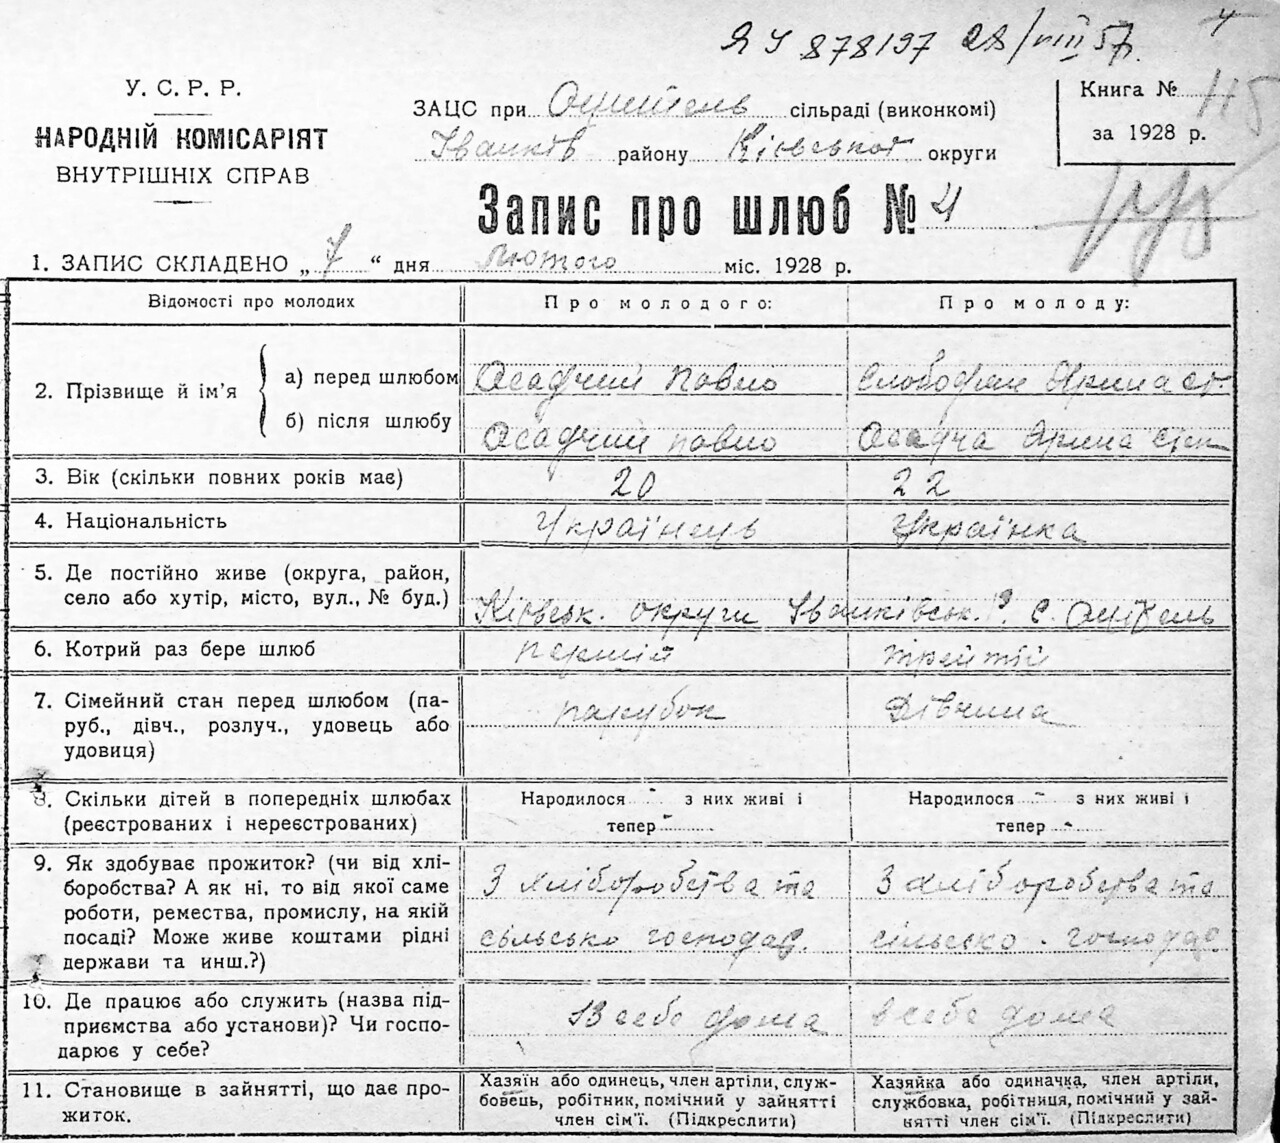 ЯЧ 878197 28/VIII 57.
У. С. Р. Р.
НАРОДНІЙ КОМІСАРІЯТ
ВНУТРІШНІХ СПРАВ
ЗАЦС при сільраді (виконкомі)
Іванків району Київської округи
Книга №
за 1928 р.
Запис про шлюб № 4
1. ЗАПИС СКЛАДЕНО „7“ дня лютого міс. 1928 р.
Відомості про молодих
Про молодого:
Про молоду:
2. Прізвище й ім’я
а) перед шлюбом
Осадчий Павло
Слободян Ярина ст
б) після шлюбу
Осадчий Павло
Осадча Ярина степ
3. Вік (скільки повних років має)
20
22
4. Національність
Українець
Українка
5. Де постійно живе (округа, район,
село або хутір, місто, вул., № буд.)
Київськ. округи Іванківськ. р. с.
6. Котрий раз бере шлюб
перший
третій
7. Сімейний стан перед шлюбом (па-
руб., дівч., розлуч., удовець або
удовиця)
парубок
Дівчина
8. Скільки дітей в попередніх шлюбах
(реєстрованих і нереєстрованих)
Народилося - з них живі і
тепер -
Народилося - з них живі і
тепер -
9. Як здобуває прожиток? (чи від хлі-
боробства? А як ні, то від якої саме
роботи, ремества, промислу, на якій
посаді? Може живе коштами рідні
держави та инш.?)
З хліборобства та
сільсько господар.
З хліборобства та
сільсько. господар
10. Де працює або служить (назва під-
приємства або установи)? Чи госпо-
дарює у себе?
В себе дома
в себе дома
11. Становище в зайнятті, що дає про-
житок.
Хазяїн або одинець, член артіли, служ-
бовець, робітник, помічний у зайнятті
член сім’ї. (Підкреслити)
Хазяйка або одиначка, член артіли,
службовка, робітниця, помічний у зай-
нятті член сім’ї. (Підкреслити)